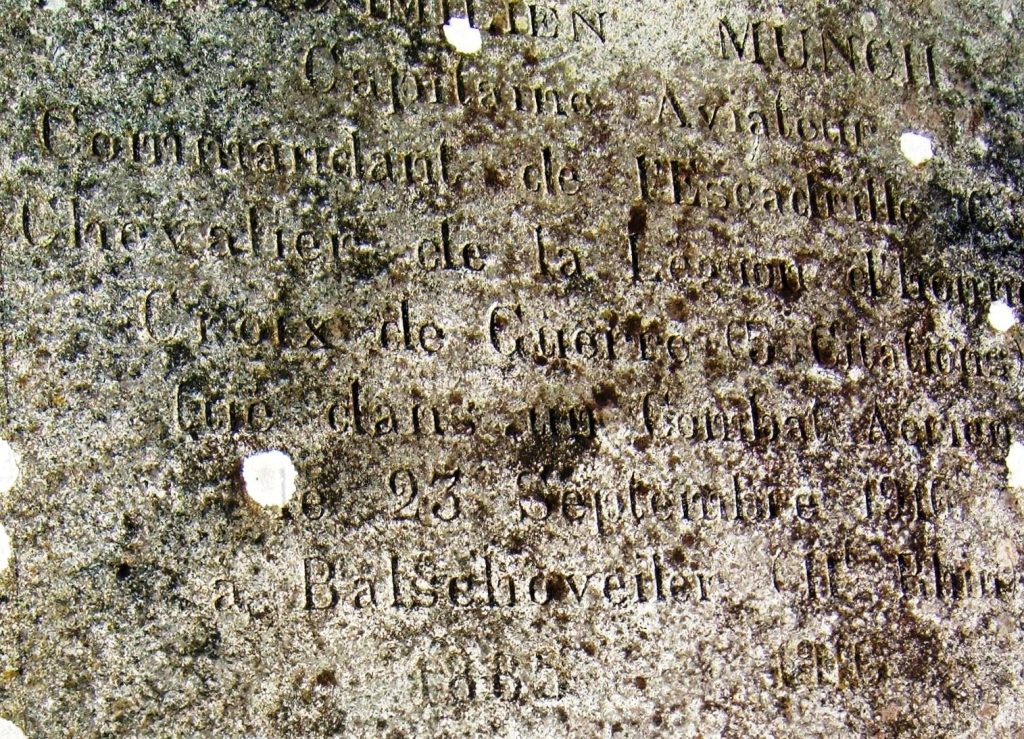 IMILIEN MUNCH
Capitaine Aviateur
Commandant de l'Escadrille
Chevalier de la Légion d'honne
Croix de Guerre (5 Citations)
tué dans un Combat Aérien
le 23 Septembre 1916
a Balschoveiler (Ht Rhin
1885 1916